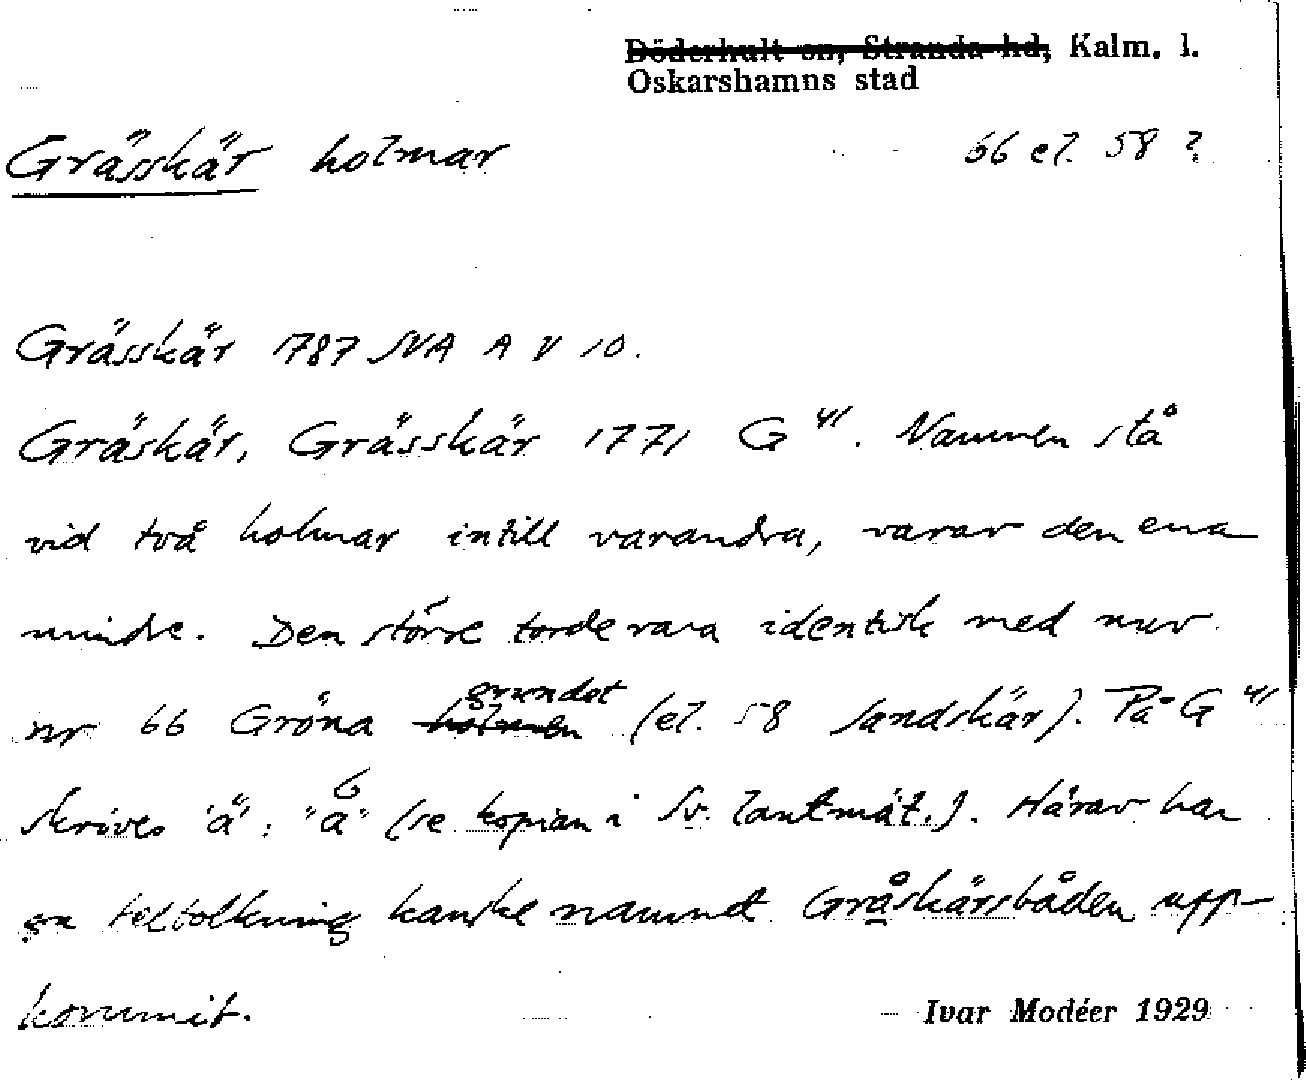 Döderhult sn, Stranda hd, Kalm. l.
Oskarshamns stad
Grässkär holmar 66 el. 58 ?
Grässkär 1787 SVA A V 10.
Gräskär, Grässkär 1771 G 41. Namnen stå
vid två holmar intill varandra, varav den ena
mindre. Den större torde vara identisk med nuv.
nr 66 Gröna holmen grundet (el. 58 Sandskär). På G 41
skrives "ä": "å" (se kopian i Sv. lantmät.). Härav har
en feltolkning kanske namnet Gråskärsbåden upp-
kommit.
Ivar Modéer 1929